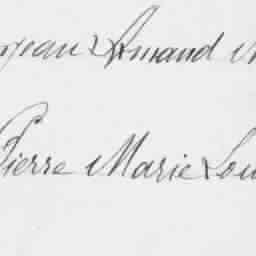 jean Amand
Pierre Marie Lou